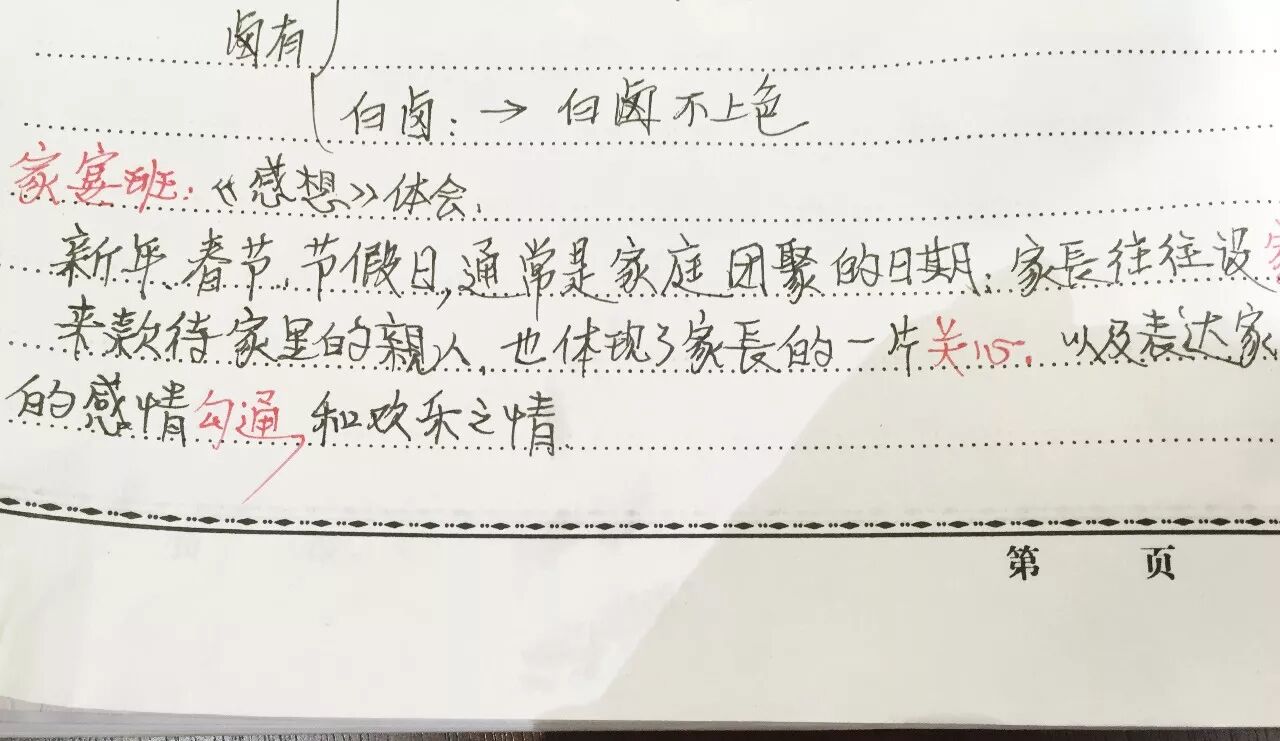 卤有
白卤：→ 白卤不上色
家宴班：《感想》体会，
新年、春节、节假日，通常是家庭团聚的日期；家長往往设
来款待家里的親人，也体现了家長的一片关心。以及表达家
的感情勾通，和欢乐之情
第 页